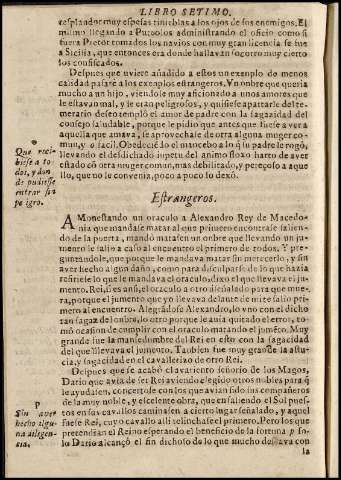 LIBRO SETIMO.
resplandor muy espesas tinieblas a los ojos de sus enemigos. El
mismo llegando a Puzoolos administrando el oficio como si
fuera Pretor tomados los navios con muy gran licencia se fue
a Sicilia, que entonces era donde hallavan socorro muy cierto
los confiscados.
Despues que uviere añadido a estos un exemplo de menos
calidad passaré a los exemplos estrangeros. Un nobre que queria
mucho a un hijo, viendole muy aficionado a unos amores que
le estavan mal, y le eran peligrosos, y quisiese apartarle del te-
merario deseo templó el amor de padre con la sagazidad del
consejo saludable, porque le pidio que antes que fuese a vera
aquella que amava, se aprovechase de otra alguna muger co-
mun, y o facil. Obedecio el mancebo a lo q su padre le rogó,
llevando el desdichado impetu del animo floxo harto de aver
estado có otra muger comun, mas debilitado, y pereçoso a aque
llo, que no le convenia, poco a poco lo dexó.
Que reci-
biese a to-
dos, y don
de pudiese
entrar sin
peligro.
Estrangeros.
AMonestando un oraculo a Alexandro Rey de Macedo-
nia que mandase matar al que primero encontrase salien-
do de la puerta, mandó matasen un onbre que llevando un ju-
mento le salio a caso al encuentro el primero de todos. Y pre-
guntandole, que porque le mandava matar sin merecerlo, y sin
aver hecho algun daño, como para desculparse de lo que hazia
refiriele lo que le mandava el oraculo dixo el que llevava el ju-
mento. Rei, si es ansi, el oraculo a otro á señalado para que mue-
ra, porque el jumento que yo llevava delante de mi te salio pri-
mero al encuentro. Alegrádose Alexandro, lo uno con el dicho
tan sagaz del onbre, lo otro porque le avia quitado el error, to-
mó ocasion de cumplir con el oraculo matando el juméto. Muy
grande fue la mansedumbre del Rei en esto con la sagacidad
del que llevava el jumento. Tanbien fue muy grande la astu-
cia, y sagacidad en el cavallerizo de otro Rei.
Despues que se acabó el avariento señorio de los Magos,
Dario que avia de ser Rei aviendo elegido otros nobles para q̃
le ayudasen, concerto de con los que avian sido sus compañeros
de la muy noble, y escelente obra, que en saliendo el Sol pues-
tos en sus cavallos caminasen a cierto lugar señalado, y aquel
fuese Rei, cuyo cavallo alli relinchase el primero. Pero los que
pretendian el Reino esperando el beneficio de la fortuna so-
lo Dario alcançó el fin dichoso de lo que mucho deseava con
P
Sin aver
hecho algu-
na diligen-
cia.
la